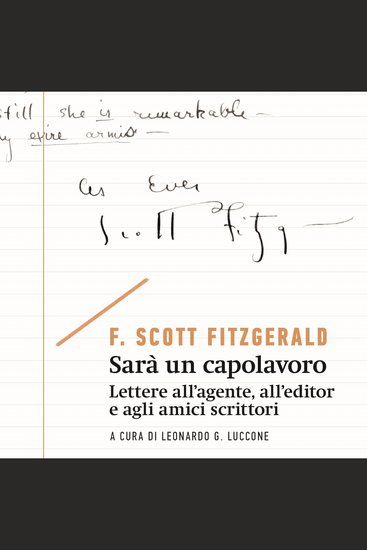 still she is remarkable —
exire armis —
As Ever
Scott Fitzg
F. SCOTT FITZGERALD
Sarà un capolavoro
Lettere all'agente, all'editor
e agli amici scrittori
A CURA DI LEONARDO G. LUCCONE